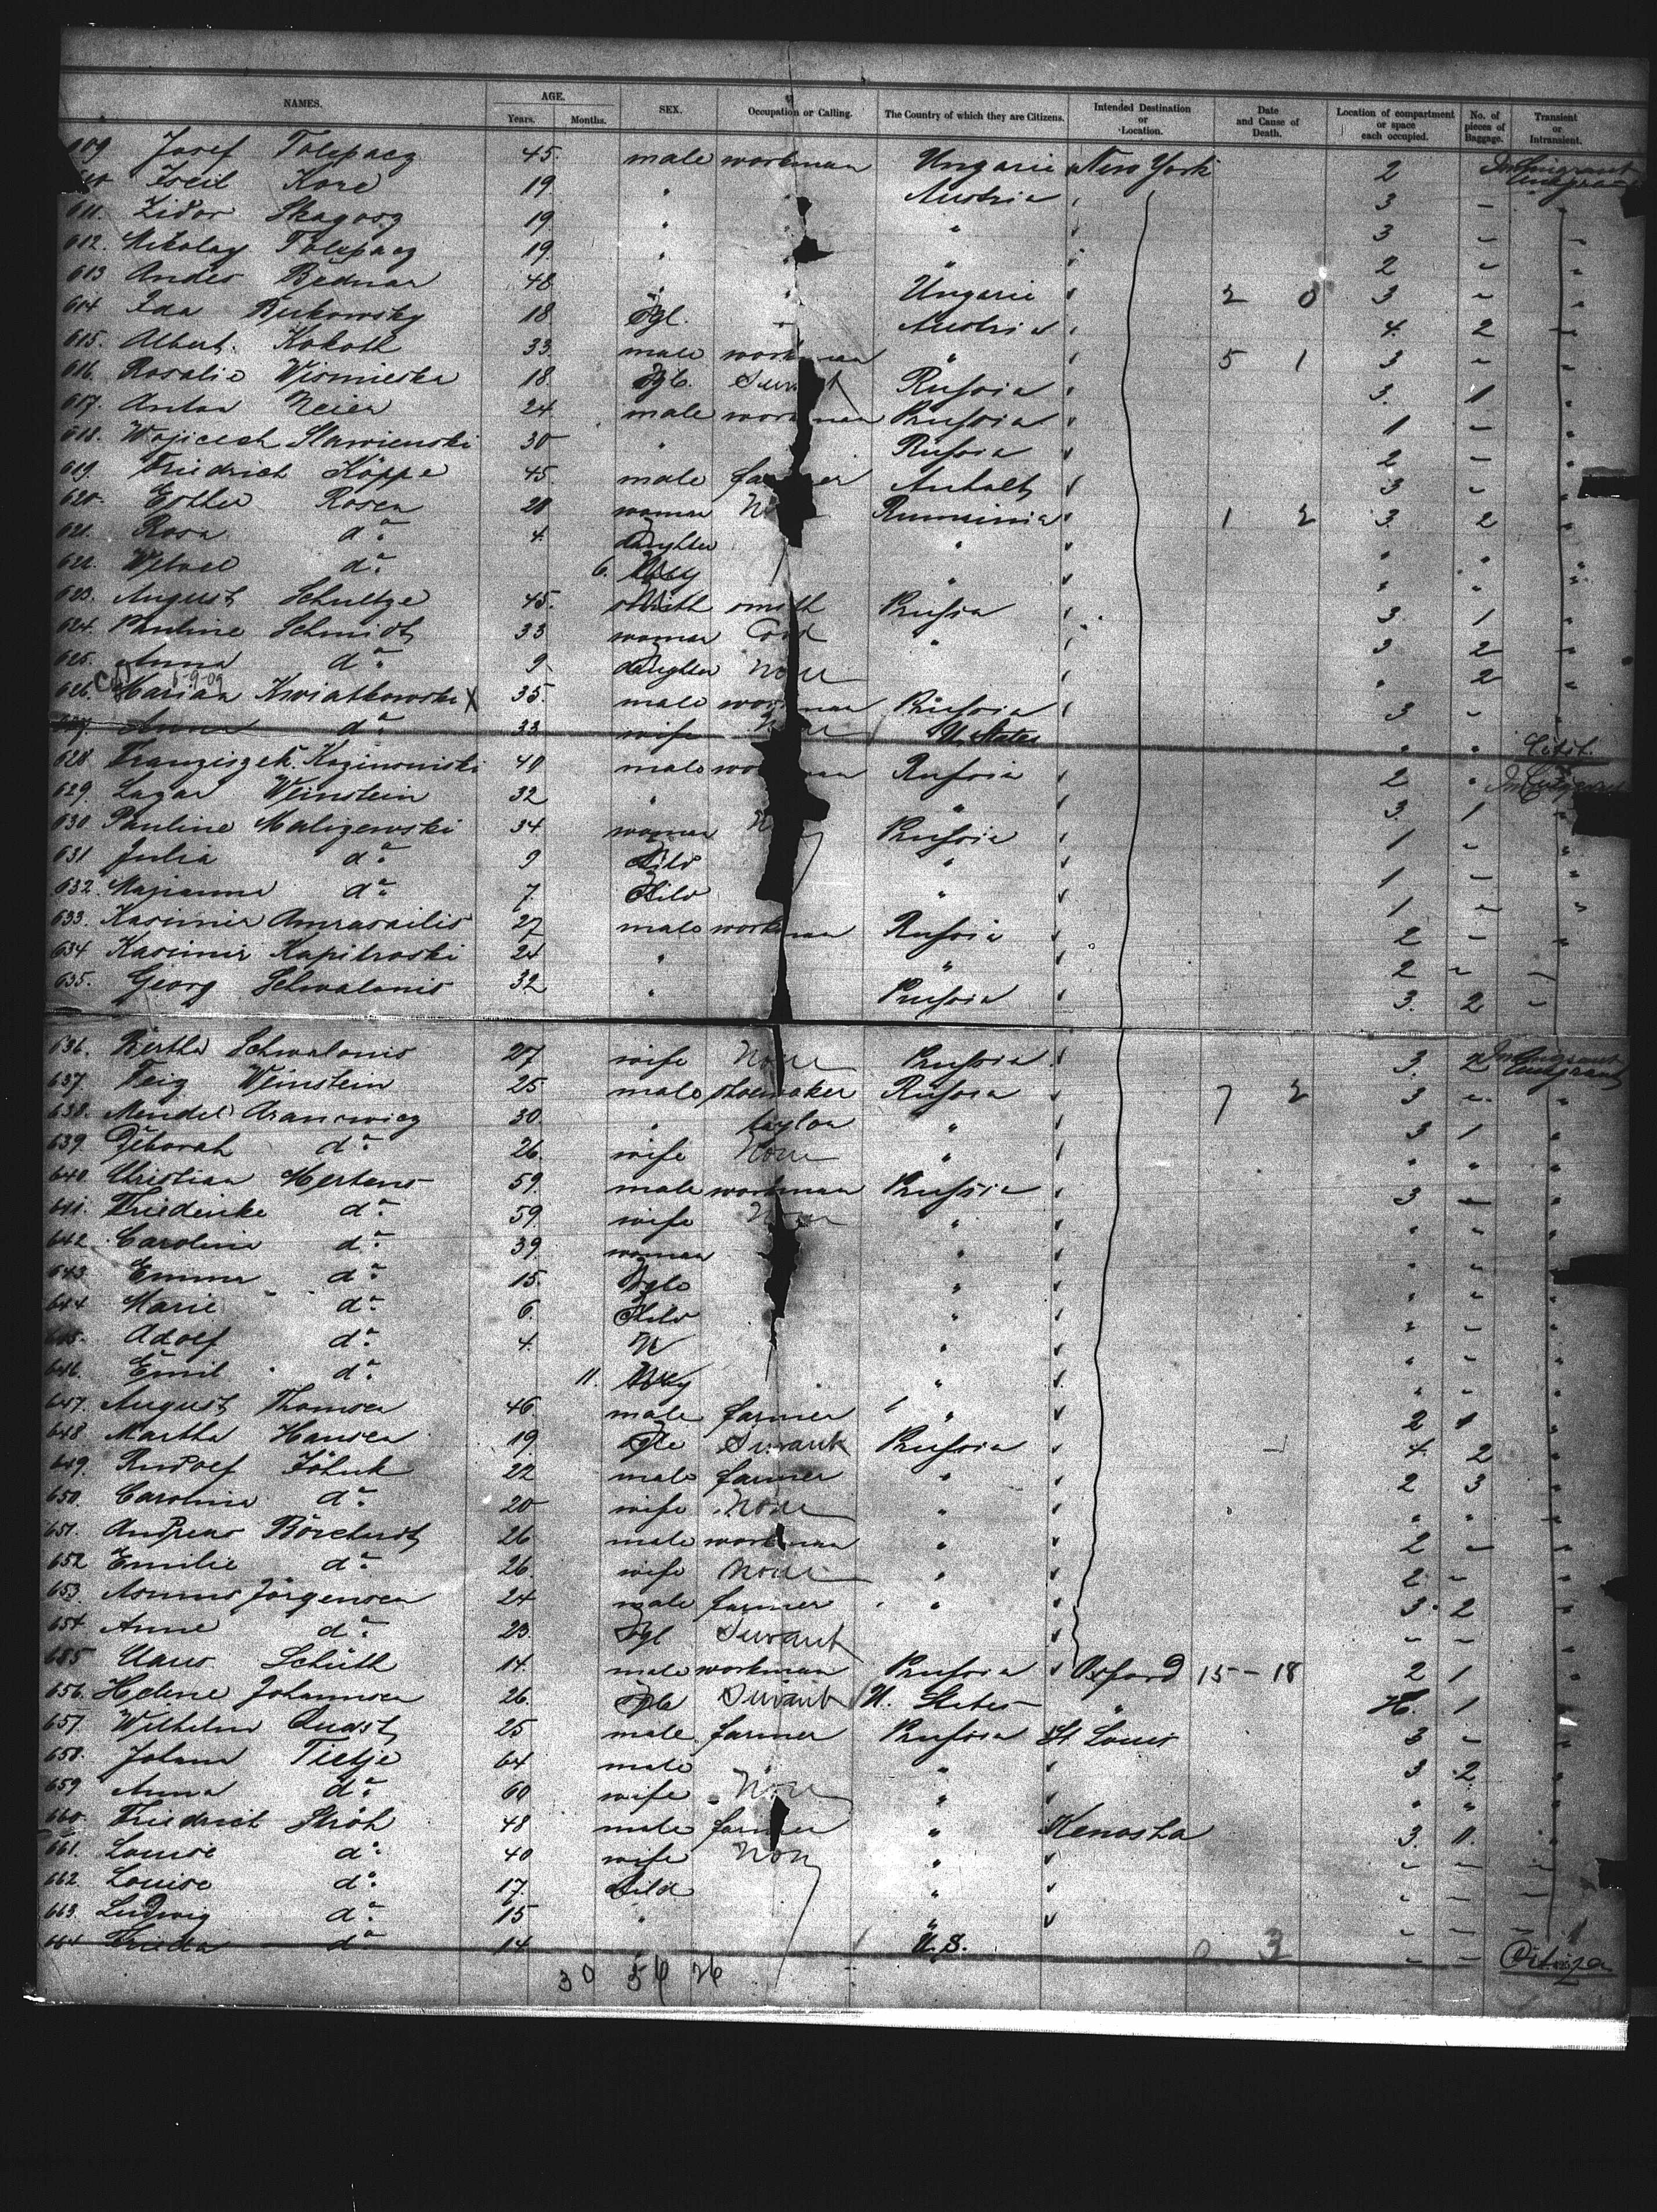 NAMES. AGE. Years. Months. SEX. Occupation or Calling. The Country of which they are Citizens. Intended Destination or Location. Date and Cause of Death. Location of compartment or space each occupied. No. of pieces of Baggage. Transient or Intransient.
609 Josef Tolopacz 45. male workman Ungarie New York 2
19. " Austria 3 - "
611. Zidor 19. " " 3 - "
612. Nikolay Tolopacz 19. " " " 2 - "
613 Andes Bednar 48 " " Ungarie 2 0 3 - "
614 Ida Bukowsky 18. Sgl. " Austria 4. 2
615. Albert Kokott 33. male workman " 5 1 3 - "
616. Rosalie Wismieska 18. Sgl. Russia 3. 1 "
617. Anton Neier 24. male workman Prussia 1 - "
618. Wojicech Slawienski 30 " Russia 2 - "
619. Friedrich Köppe 45. male farmer Anhalt 3 - "
620. Esther Rosen 28 woman Rumainia 1 2 3. 2 "
621. Rosa do. 4. daughter " " " "
622. do. 6. " " " "
623. August Schultze 45. smith Prussia 3. 1 "
624. Pauline Schmidt 33 woman " 3 2 "
625. Anna do. 9 daughter None " 2 "
626. 6-9-09 Marian Kwiatkowski X 35. male workman Russia 3 -
627. Anna do. 33. wife U. States " " Citit.
628. Franziszek Kazinowski 40 male workman Russia 2 "
629. Lazar Weinstein 32 " " 3. 1 "
630 Pauline Malizewski 34 woman Prussia 1 - "
631 Julia do. 9 Child " 1 - "
632. Marianna do. 7. Child " 1 - "
633. Kasimir 27 male workman Russia 2 - "
634 Kasimir Kapitroski 24 " " 2 - -
635. Georg Schwalonis 32 " Prussia 3. 2 -
636. Bertha Schwalonis 27 wife None Prussia 3. 2
637. Feig Weinstein 25 male shoemaker Russia 7 2 3 - "
638. Mendel Aranowicz 30. " taylor " 3 1 "
639. Deborah do. 26. wife None " " " "
640. Christian Mertens 59. male workman Prussia 3 - "
641. Friederike do. 59. wife None " " - "
642. Caroline do. 39. woman " " - "
643. Emma do. 15. " " - "
644 Marie do. 6. Child " " - "
645. Adolf do. 4. " " - "
646. Emil do. 11. " " - "
647. August Thomsen 46. male farmer " 2 1 "
648. Martha Hansen 19. Servant Prussia 4. 2 "
649. Rudolf 22 male farmer " 2 3 "
650. Caroline do. 20 wife None " " " "
651. Andreas 26 male workman " 2 - "
652. Emilie do. 26. wife None " 2 - "
653. Asmus Jörgensen 24 male farmer " 3. 2 "
654 Anne do. 23. Sgl Servant - - "
655 Claus Schütt 14. male workman Prussia Oxford 15-18 2 1 "
656. Helene Johannsen 26. Servant U. States " 1 "
657. Wilhelm Quast 25 male farmer Prussia St Louis 3 - "
658. Johann Tietje 64 male " 3 2 "
659 Anna do. 60 wife None " " " "
660. Friedrich Ströh 48 male farmer " Kenosha 3. 11. "
661. Louise do. 40 wife None " - - -
662. Louise do. 17. Child " - - -
663. Ludwig do. 15 " " - - -
664 Frieda do. 14 U.S. 3 - -
30